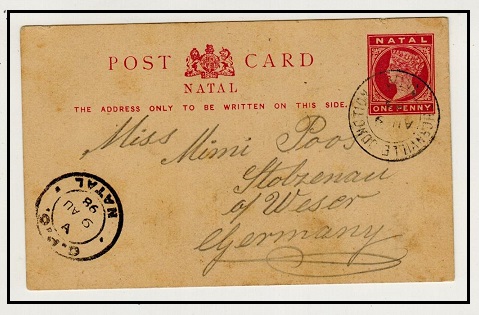 POST CARD
NATAL
THE ADDRESS ONLY TO BE WRITTEN ON THIS SIDE.
NATAL
ONE PENNY
JUNCTION
AU
Miss
Mimi Poos
Stolzenau
o/ Weser
Germany
NATAL
G.P.O.
A
9 AU
98